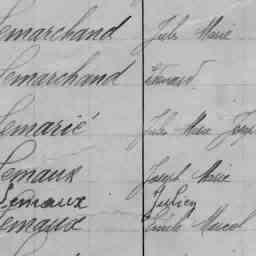 Lemarchand Jules Marie
Lemarchand Edouard
Lemarié Jules Marie Joseph
Lemaux Joseph Marie
Lemaux Julien
Lemaux Emile Marcel